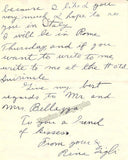 because I liked you
very much I hope to see
you in States
I will be in Rome
Thursday and if you
want to write to me
write to me at the Hotel
Quirinale
Give my best
regards to Mr and
Mrs Bellezza
To you a bunch
of kisses
From yours
Rina Gigli